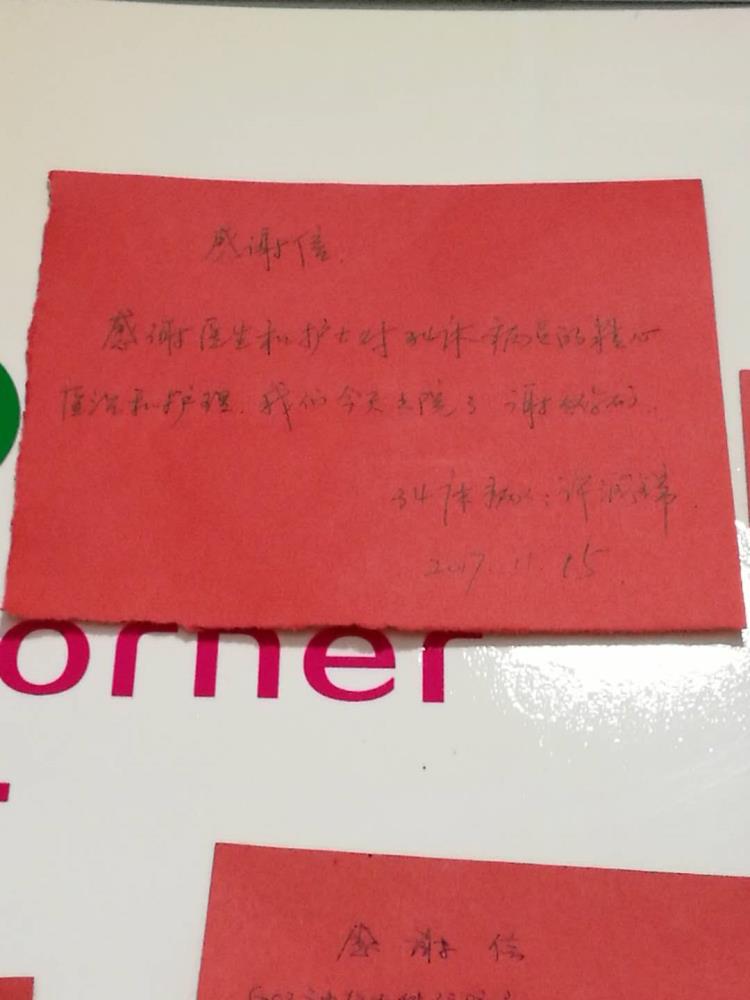 感谢信.
感谢医生和护士对34床病员的精心
医治和护理.我们今天出院了 谢谢你们.
34床病人:许
2017.11.15.
orner
感谢信